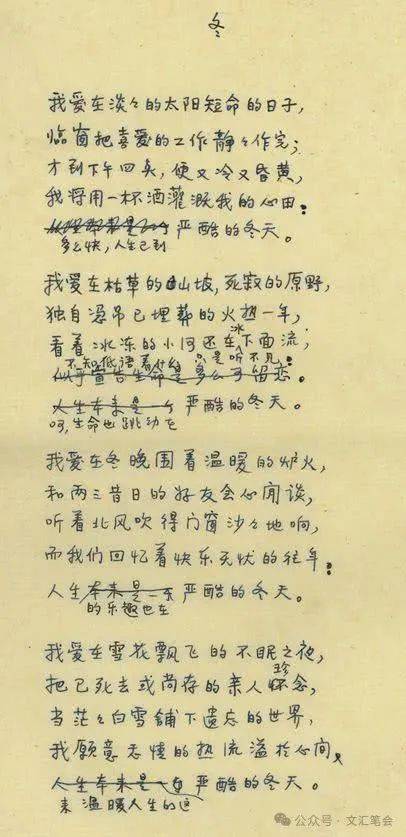 冬
我爱在淡々的太阳短命的日子，
临窗把喜爱的工作静々作完；
才到下午四点，便又冷又昏黄，
我将用一杯酒灌溉我的心田：
严酷的冬天。
多么快，人生已到
我爱在枯草的山坡，死寂的原野，
独自凭吊已埋葬的火热一年，
看着冰冻的小河还在冰下面流，
不知低语着什么，只是听不见：
似乎宣告生命是多么可留恋。
人生本来是一个严酷的冬天。
呵，生命也跳动在
我爱在冬晚围着温暖的炉火，
和两三昔日的好友会心闲谈，
听着北风吹得门窗沙々地响，
而我们回忆着快乐无忧的往年：
人生本来是一个严酷的冬天。
的乐趣也在
我爱在雪花飘飞的不眠之夜，
珍
把已死去或尚存的亲人怀念，
当茫々白雪铺下遗忘的世界，
我愿意感情的热流溢于心间，
人生本来是一个严酷的冬天。
来温暖人生的这
公众号·文汇笔会